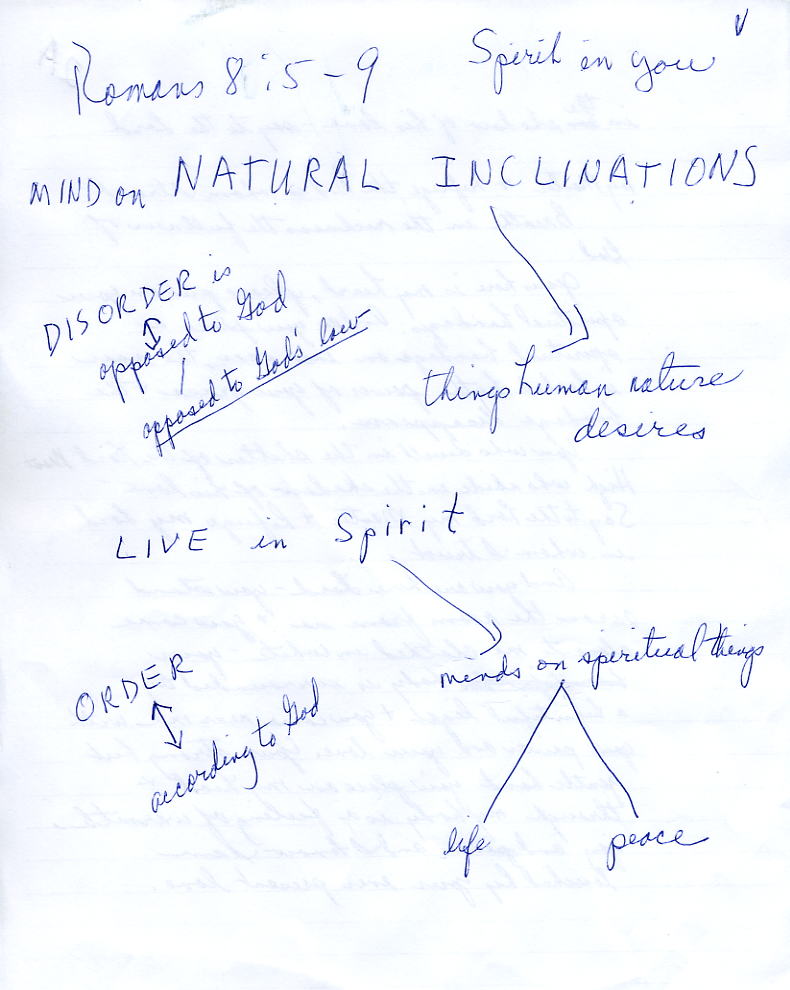 Romans 8:5-9 Spirit in you
MIND on NATURAL INCLINATIONS
DISORDER is
opposed to God
opposed to God's law
things human nature
desires
LIVE in Spirit
minds on spiritual things
ORDER
according to God
life peace